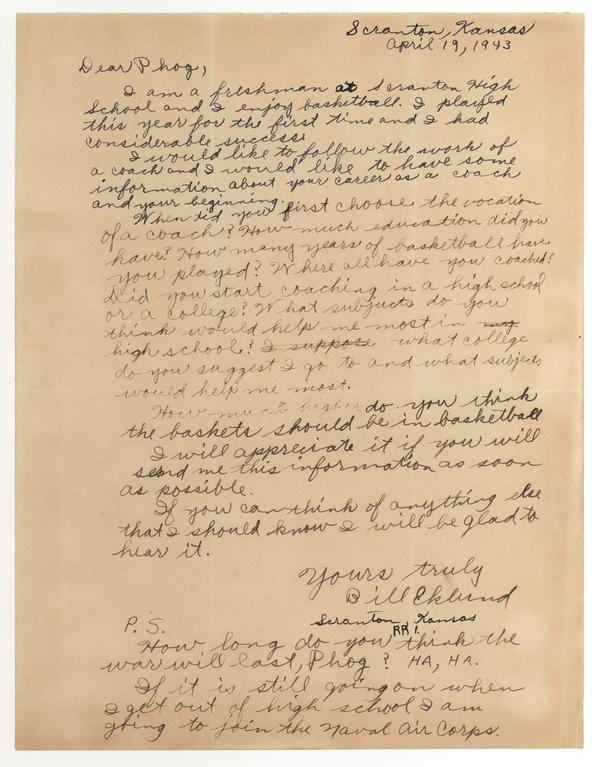 Scranton, Kansas
April 19, 1943
Dear Phog,
I am a freshman at Scranton High
School and I enjoy basketball. I played
this year for the first time and I had
considerable success.
I would like to follow the work of
a coach and I would like to have some
information about your career as a coach
and your beginning.
When did you first choose the vocation
of a coach? How much education did you
have? How many years of basketball have
you played? Where all have you coached?
Did you start coaching in a high school
or a college? What subjects do you
think would help me most in may
high school? I suppose what college
do you suggest I go to and what subjects
would help me most.
How much higher do you think
the baskets should be in basketball
I will appreciate it if you will
send me this information as soon
as possible.
If you can think of anything else
that I should know I will be glad to
hear it.
Yours truly
Bill Eklund
Scranton Kansas
RR 1.
P.S.
How long do you think the
war will last, Phog? HA, HA.
If it is still going on when
I get out of high school I am
going to join the Naval Air Corps.